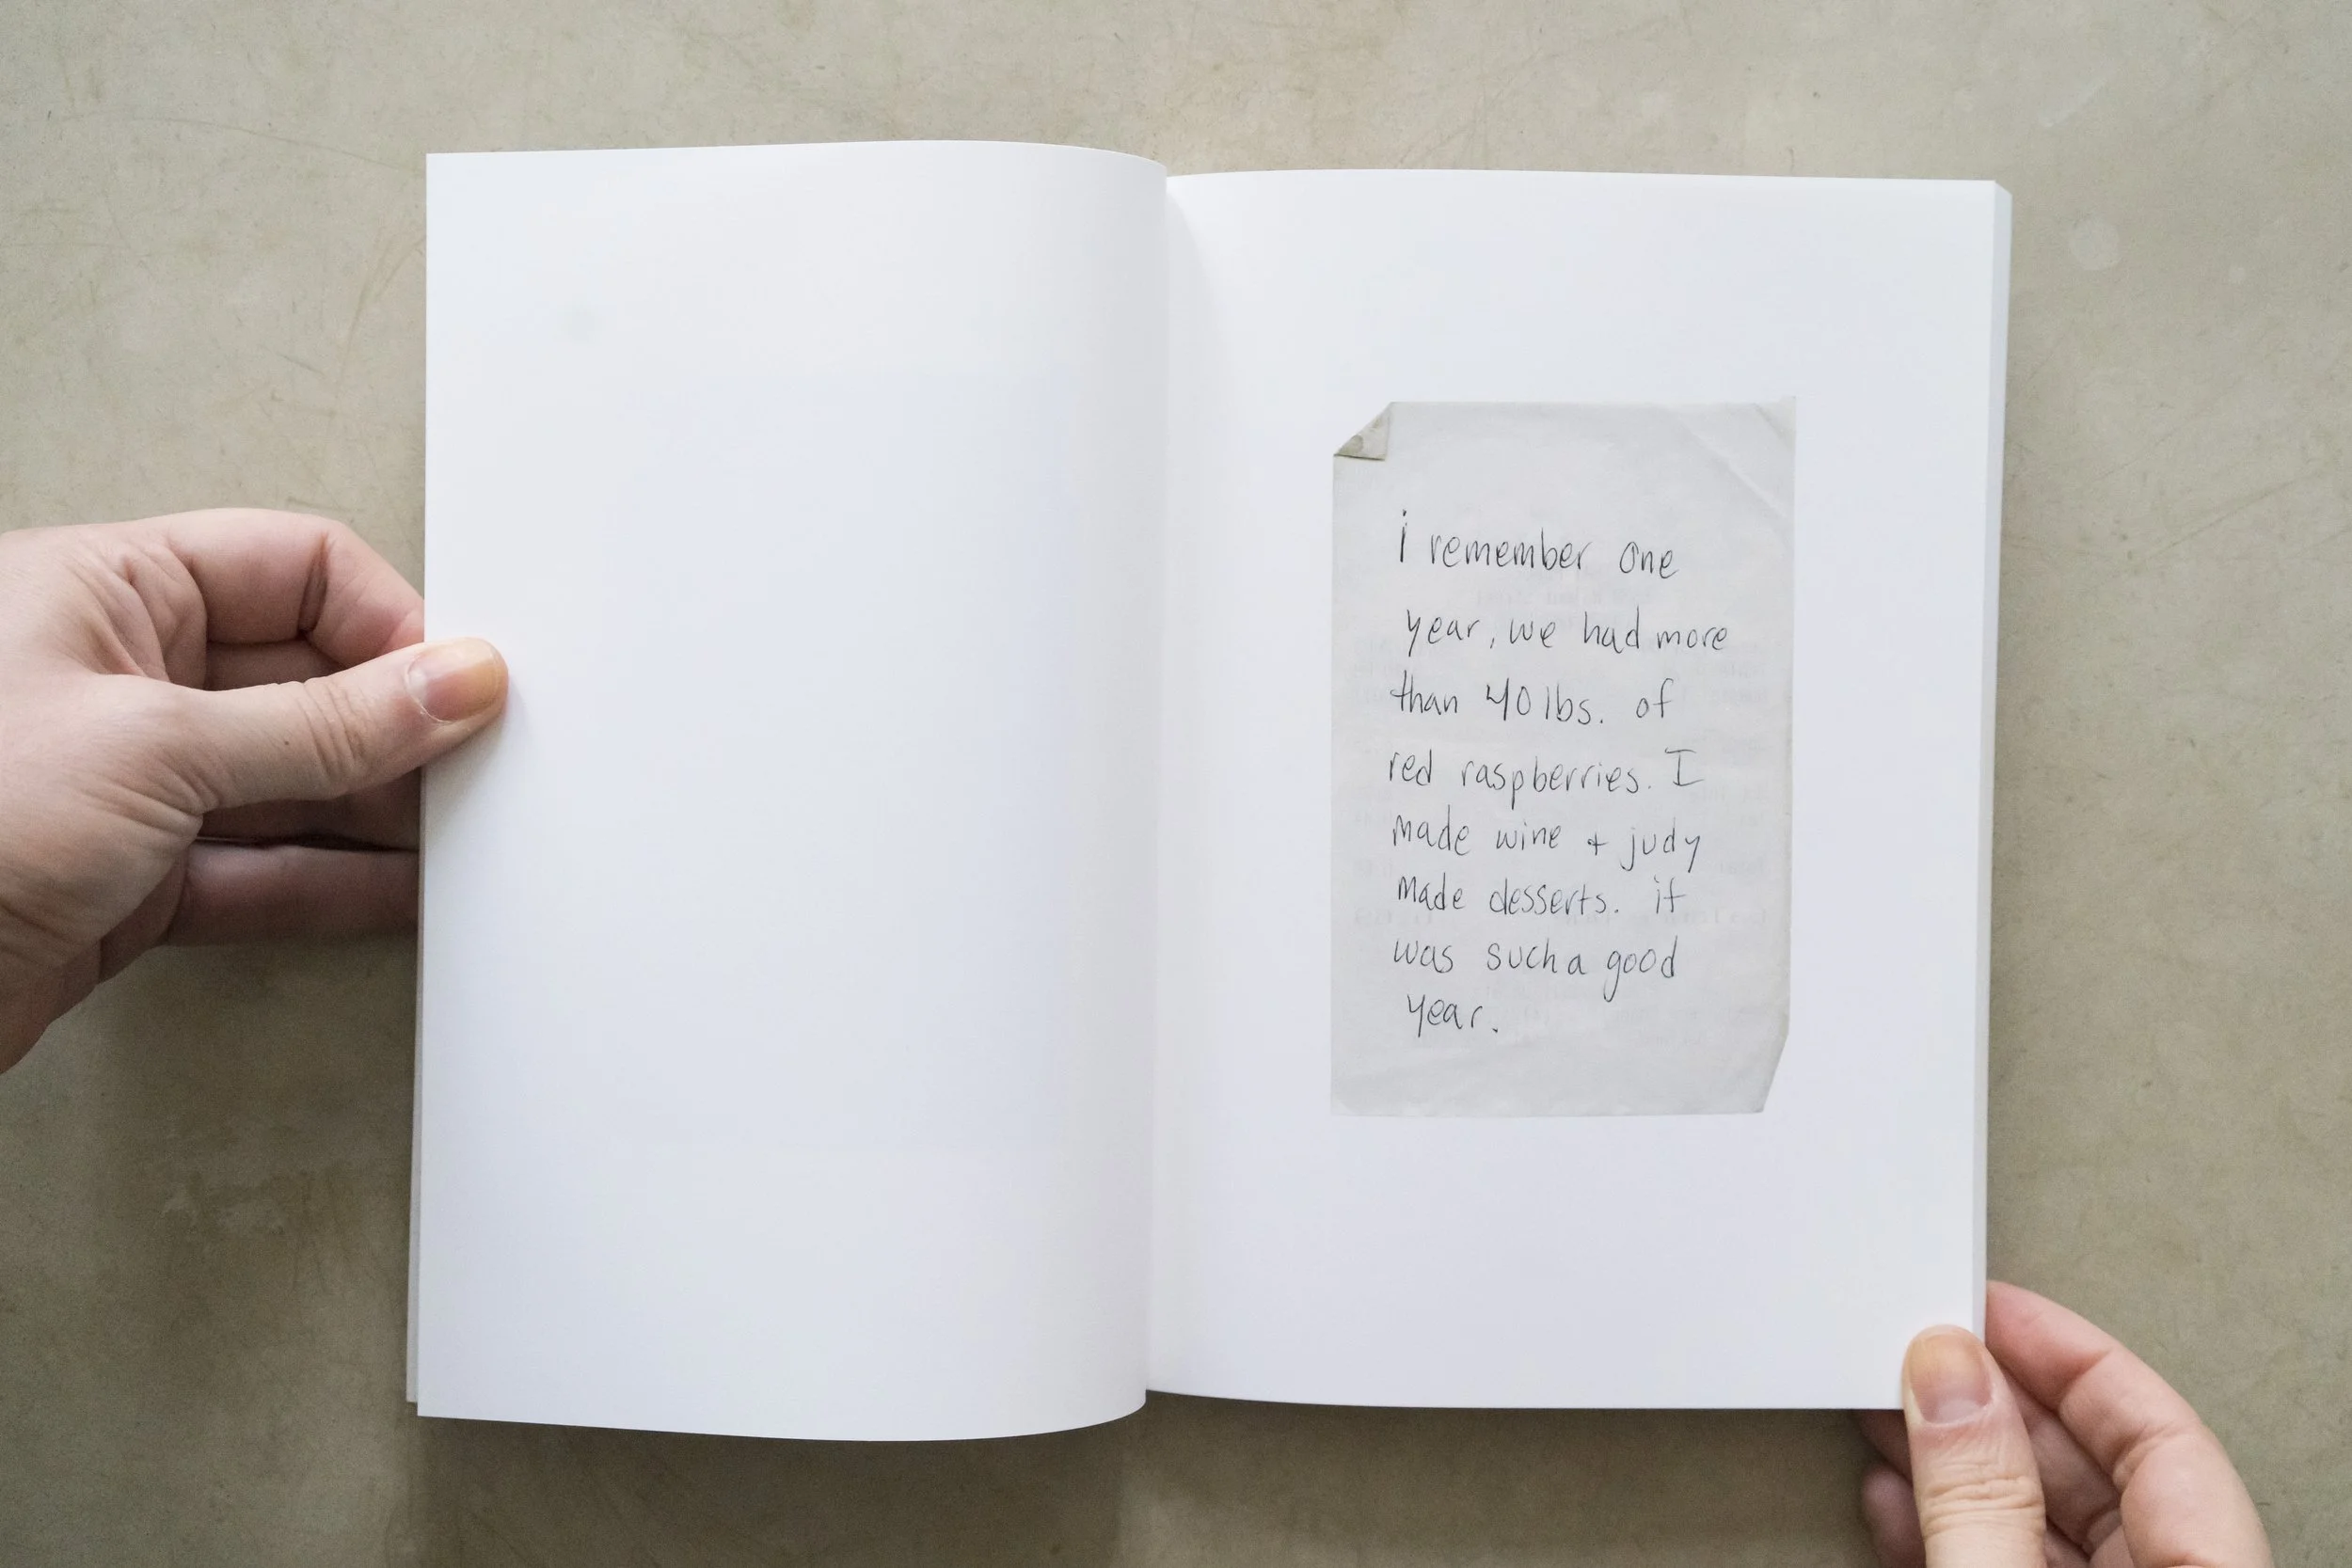 i remember one
year, we had more
than 40 lbs. of
red raspberries. I
made wine + judy
made desserts. it
was such a good
year.